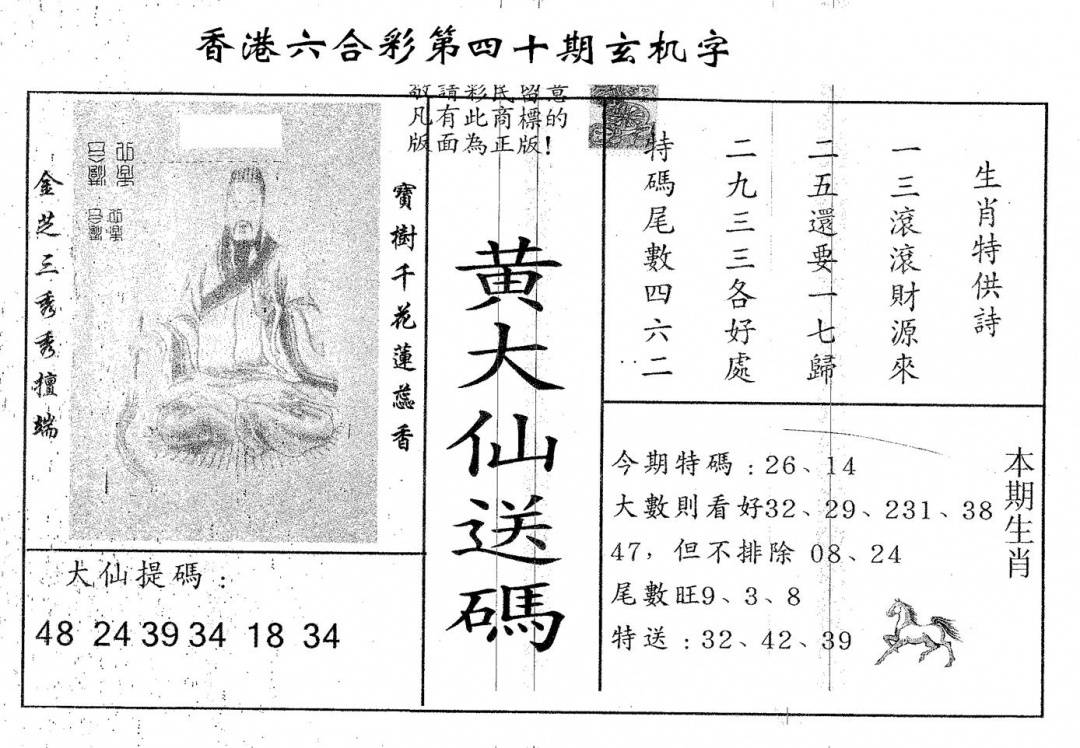 香港六合彩第四十期玄机字
敬請彩民留意
凡有此商標的
版面為正版!
金芝三秀秀擅端
寶樹千花蓮蕊香
黄大仙送碼
生肖特供詩
一三滾滾財源來
二五還要一七歸
二九三三各好處
特碼尾數四六二
本期生肖
今期特碼:26、14
大數則看好32、29、231、38
47，但不排除 08、24
尾數旺9、3、8
特送:32、42、39
大仙提碼:
48 24 39 34 18 34